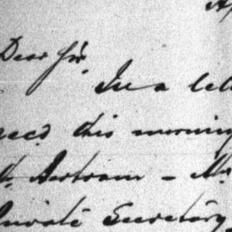 Dear Sir,
In a let
this morning
Bertram - Mr
Private Secretary